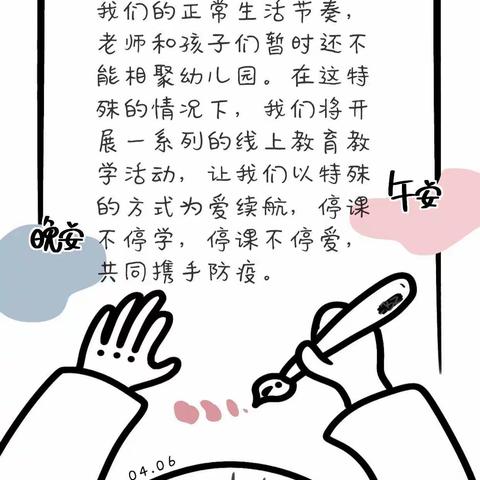 我们的正常生活节奏，
老师和孩子们暂时还不
能相聚幼儿园。在这特
殊的情况下，我们将开
展一系列的线上教育教
学活动，让我们以特殊
的方式为爱续航，停课
不停学，停课不停爱，
共同携手防疫。
午安
晚安
04.06